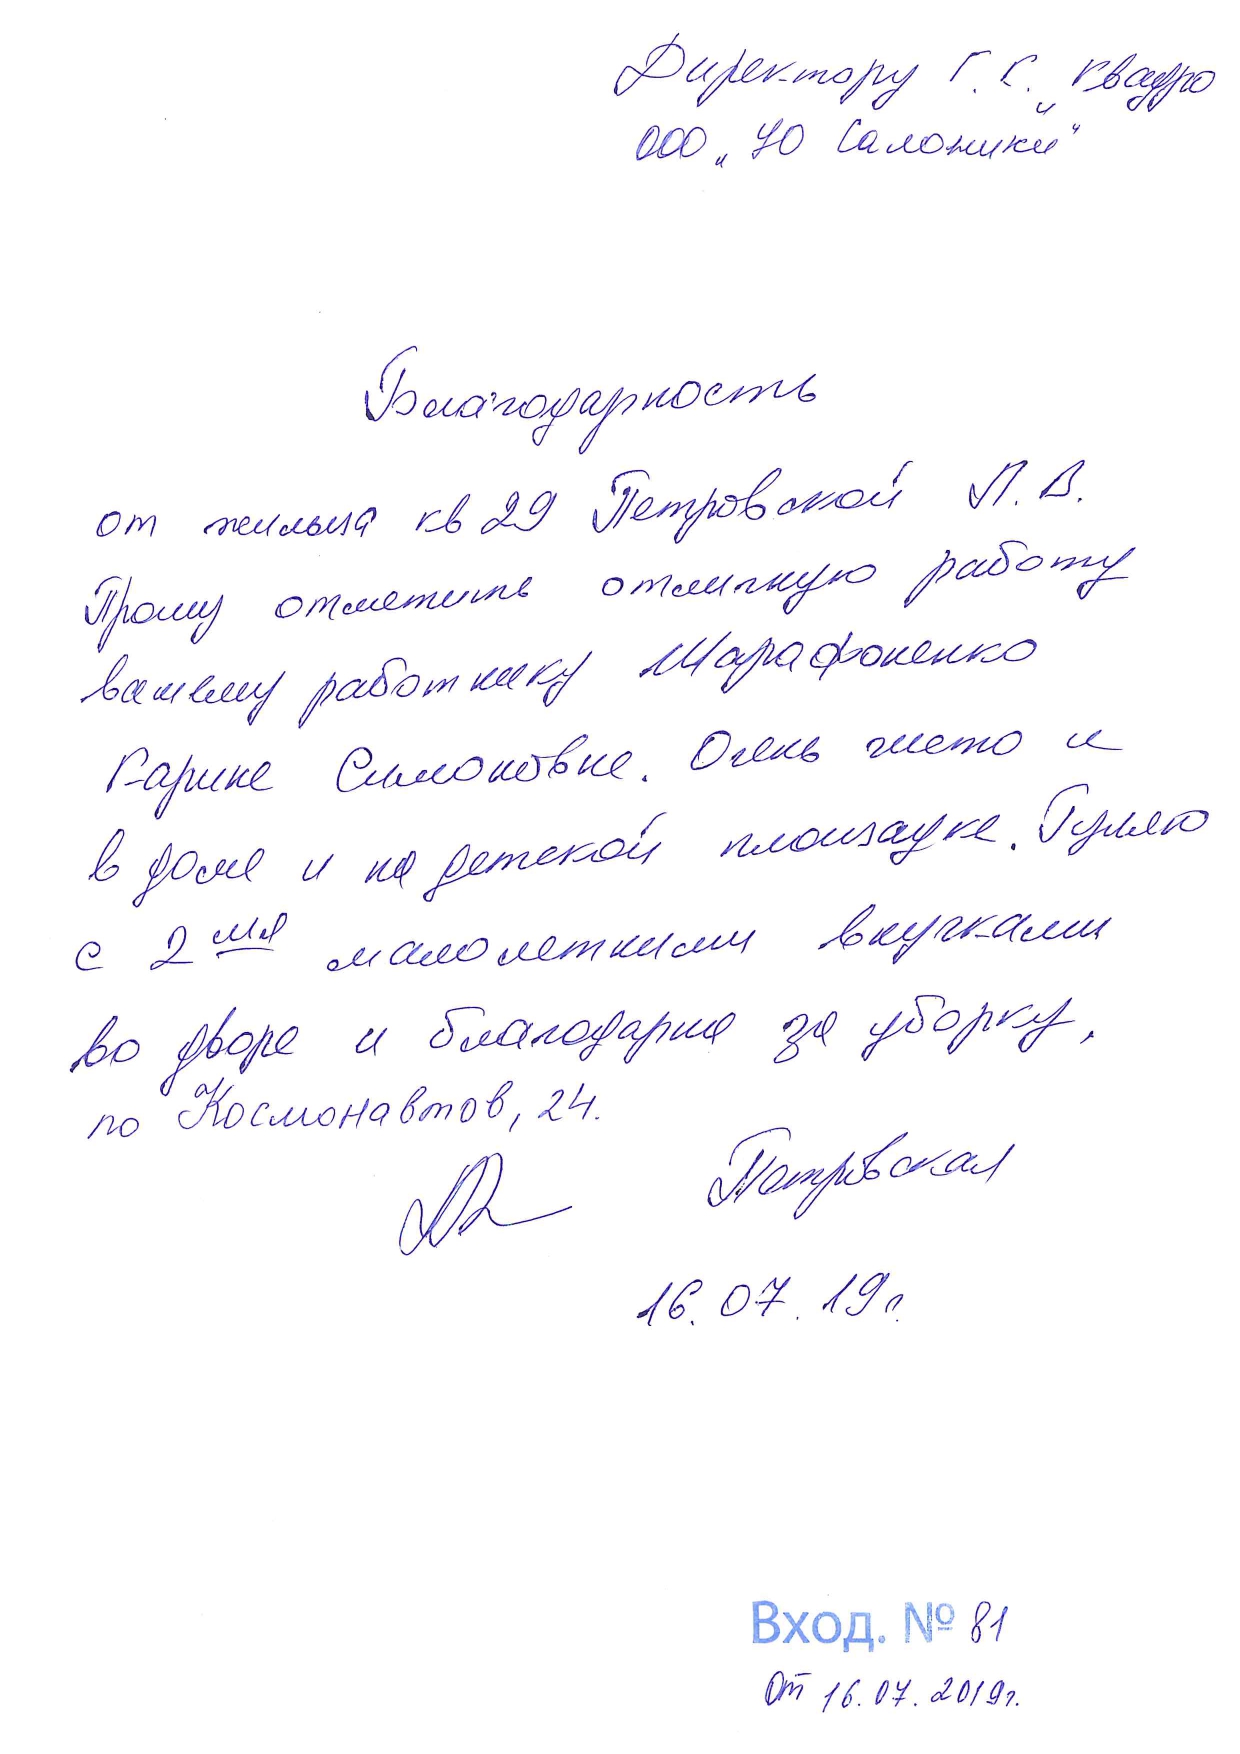 Директору Г.К. „Квадро
ООО „УО Салоники"
Благодарность
от жильца кв 29 Петровской Л.В.
Прошу отметить отличную работу
вашему работнику Шарафоненко
Карине Симоновне. Очень чисто и
в доме и на детской площадке. Гуляю
с 2 мя малолетними внучками
во дворе и благодарна за уборку,
по Космонавтов, 24.
Петровская
16.07.19г.
Вход. № 81
от 16.07.2019г.